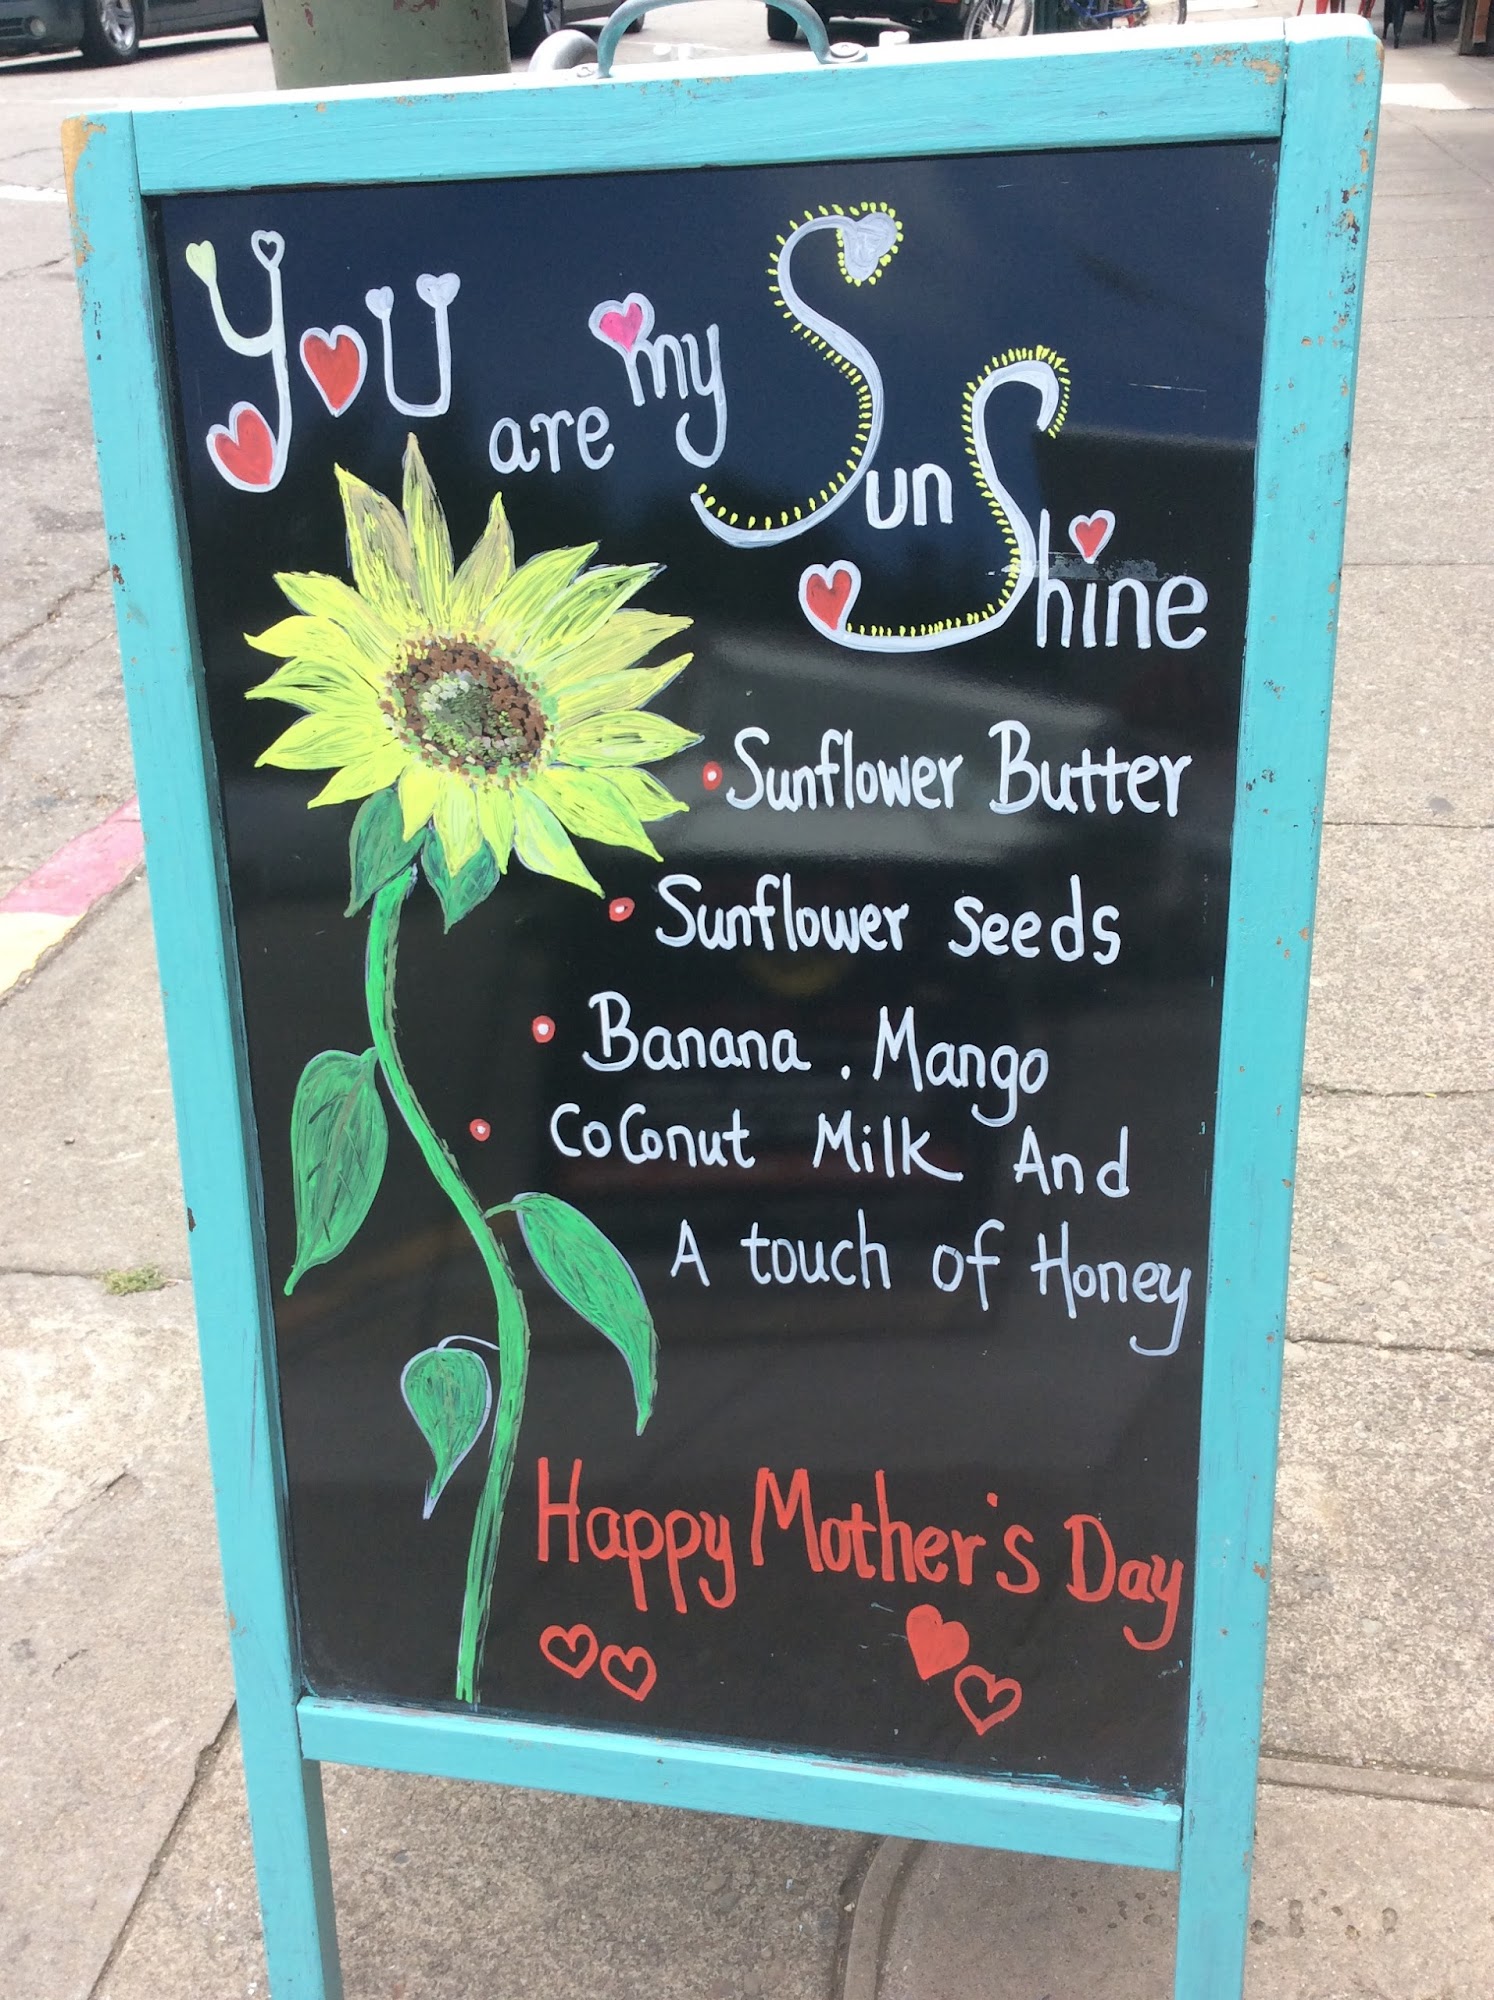 You are my SunShine
• Sunflower Butter
• Sunflower seeds
• Banana . Mango
• CoConut Milk And
A touch of Honey
Happy Mother's Day